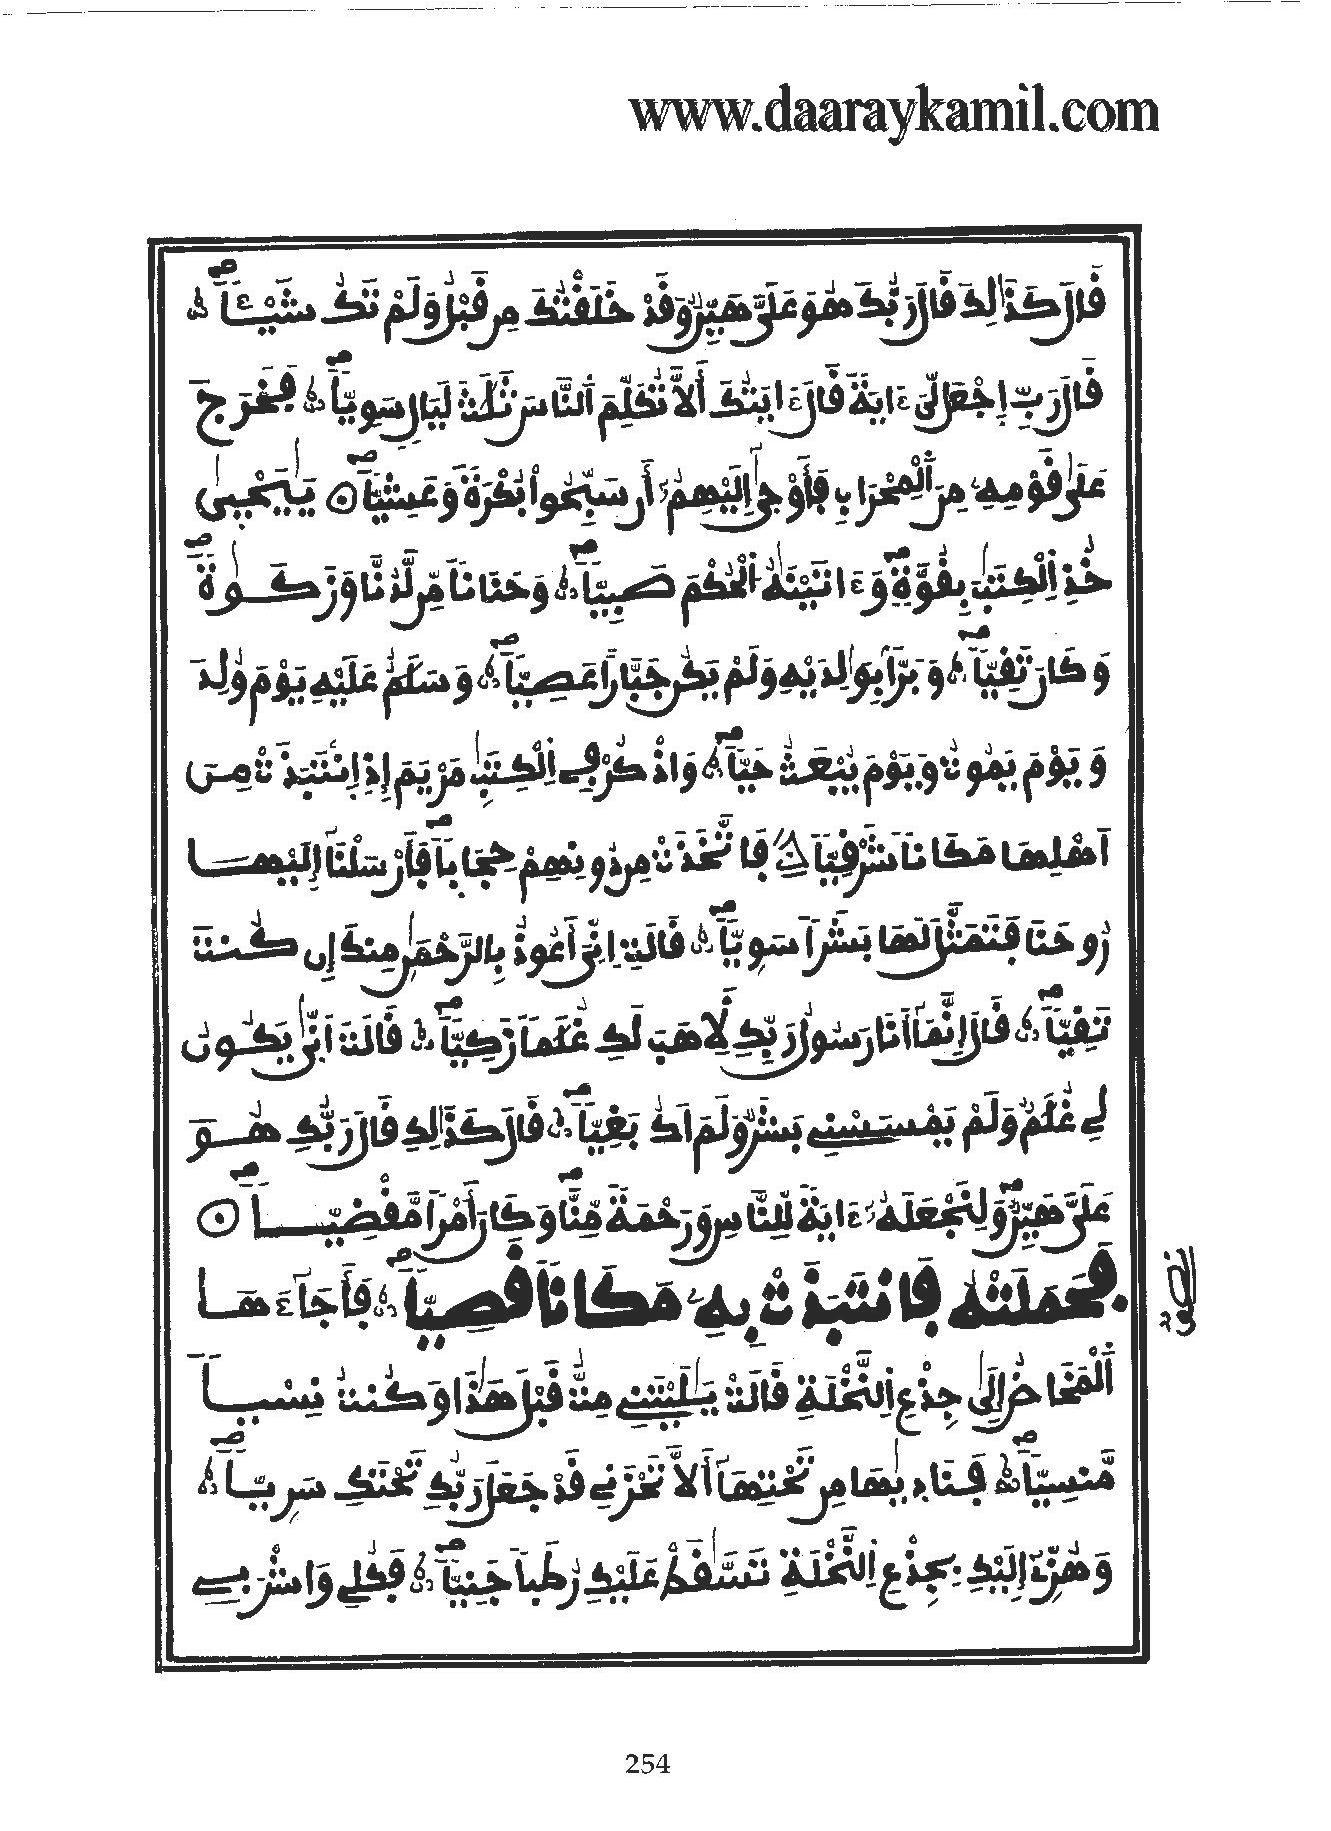 www.daaraykamil.com
قَالَ كَذَٰلِكَ قَالَ رَبُّكَ هُوَ عَلَىَّ هَيِّنٌ وَقَدْ خَلَقْتُكَ مِن قَبْلُ وَلَمْ تَكُ شَيْـًٔا
قَالَ رَبِّ اِجْعَل لِّىَ ءَايَةً قَالَ ءَايَتُكَ أَلَّا تُكَلِّمَ اَلنَّاسَ ثَلَٰثَ لَيَالٍ سَوِيًّا فَخَرَجَ
عَلَىٰ قَوْمِهِۦ مِنَ اَلْمِحْرَابِ فَأَوْحَىٰ إِلَيْهِمُۥ أَن سَبِّحُواْ بُكْرَةً وَعَشِيًّا يَٰيَحْيَىٰ
خُذِ اِلْكِتَٰبَ بِقُوَّةٍ وَءَاتَيْنَٰهُ اُلْحُكْمَ صَبِيًّا وَحَنَانًا مِّن لَّدُنَّا وَزَكَوٰةً
وَكَانَ تَقِيًّا وَبَرًّا بِوَٰلِدَيْهِ وَلَمْ يَكُن جَبَّارًا عَصِيًّا وَسَلَٰمٌ عَلَيْهِ يَوْمَ وُلِدَ
وَيَوْمَ يَمُوتُ وَيَوْمَ يُبْعَثُ حَيًّا وَاذْكُرْ فِى اِلْكِتَٰبِ مَرْيَمَ إِذِ اِنتَبَذَتْ مِنَ
اَهْلِهَا مَكَانًا شَرْقِيًّا فَاتَّخَذَتْ مِن دُونِهِمْ حِجَابًا فَأَرْسَلْنَا إِلَيْهَا
رُوحَنَا فَتَمَثَّلَ لَهَا بَشَرًا سَوِيًّا قَالَتِ اِنِّىَ أَعُوذُ بِالرَّحْمَٰنِ مِنكَ إِن كُنتَ
تَقِيًّا قَالَ إِنَّمَا أَنَا رَسُولُ رَبِّكِ لِأَهَبَ لَكِ غُلَٰمًا زَكِيًّا قَالَتَ اَنَّىٰ يَكُونُ
لِى غُلَٰمٌ وَلَمْ يَمْسَسْنِى بَشَرٌ وَلَمَ اَكُ بَغِيًّا قَالَ كَذَٰلِكِ قَالَ رَبُّكِ هُوَ
عَلَىَّ هَيِّنٌ وَلِنَجْعَلَهُۥ ءَايَةً لِّلنَّاسِ وَرَحْمَةً مِّنَّا وَكَانَ أَمْرًا مَّقْضِيًّا
فَحَمَلَتْهُ فَانتَبَذَتْ بِهِۦ مَكَانًا قَصِيًّا فَأَجَآءَهَا
نصف
اَلْمَخَاضُ إِلَىٰ جِذْعِ اِلنَّخْلَةِ قَالَتْ يَٰلَيْتَنِى مِتُّ قَبْلَ هَٰذَا وَكُنتُ نِسْيًا
مَّنسِيًّا فَنَادَىٰهَا مِن تَحْتِهَا أَلَّا تَحْزَنِى قَدْ جَعَلَ رَبُّكِ تَحْتَكِ سَرِيًّا
وَهُزِّى إِلَيْكِ بِجِذْعِ اِلنَّخْلَةِ تَسَّٰقَطْ عَلَيْكِ رُطَبًا جَنِيًّا فَكُلِى وَاشْرَبِى
254